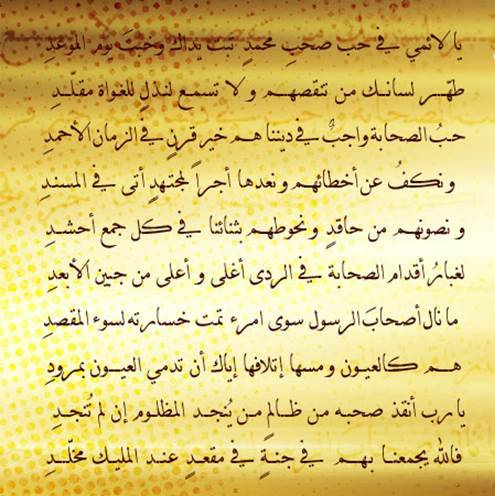 يا لائمي في حب صحبِ محمدٍ تبت يداك وخبتَ يوم الموعدِ
طهّر لسانك من تنقصهم و لا تسمع لنذلٍ للغواة مقلّدِ
حبُ الصحابة واجبٌ في ديننا هم خير قرنٍ في الزمان الأحمدِ
و نكفُ عن أخطائهم و نعدها أجراً لمجتهدٍ أتى في المسندِ
و نصونهم من حاقدٍ و نحوطهم بثنائنا في كل جمع أحشدِ
لغبارُ أقدام الصحابة في الردى أغلى و أعلى من جبين الأبعدِ
ما نال أصحابَ الرسول سوى امرء تمت خسارته لسوء المقصدِ
هم كالعيون و مسها إتلافها إياك أن تدمي العيون بمرودِ
يا رب أنقذ صحبه من ظالمٍ من يُنجد المظلوم إن لم تُنجدِ
فالله يجمعنا بهم في جنةٍ في مقعدٍ عند المليك مخلّدِ